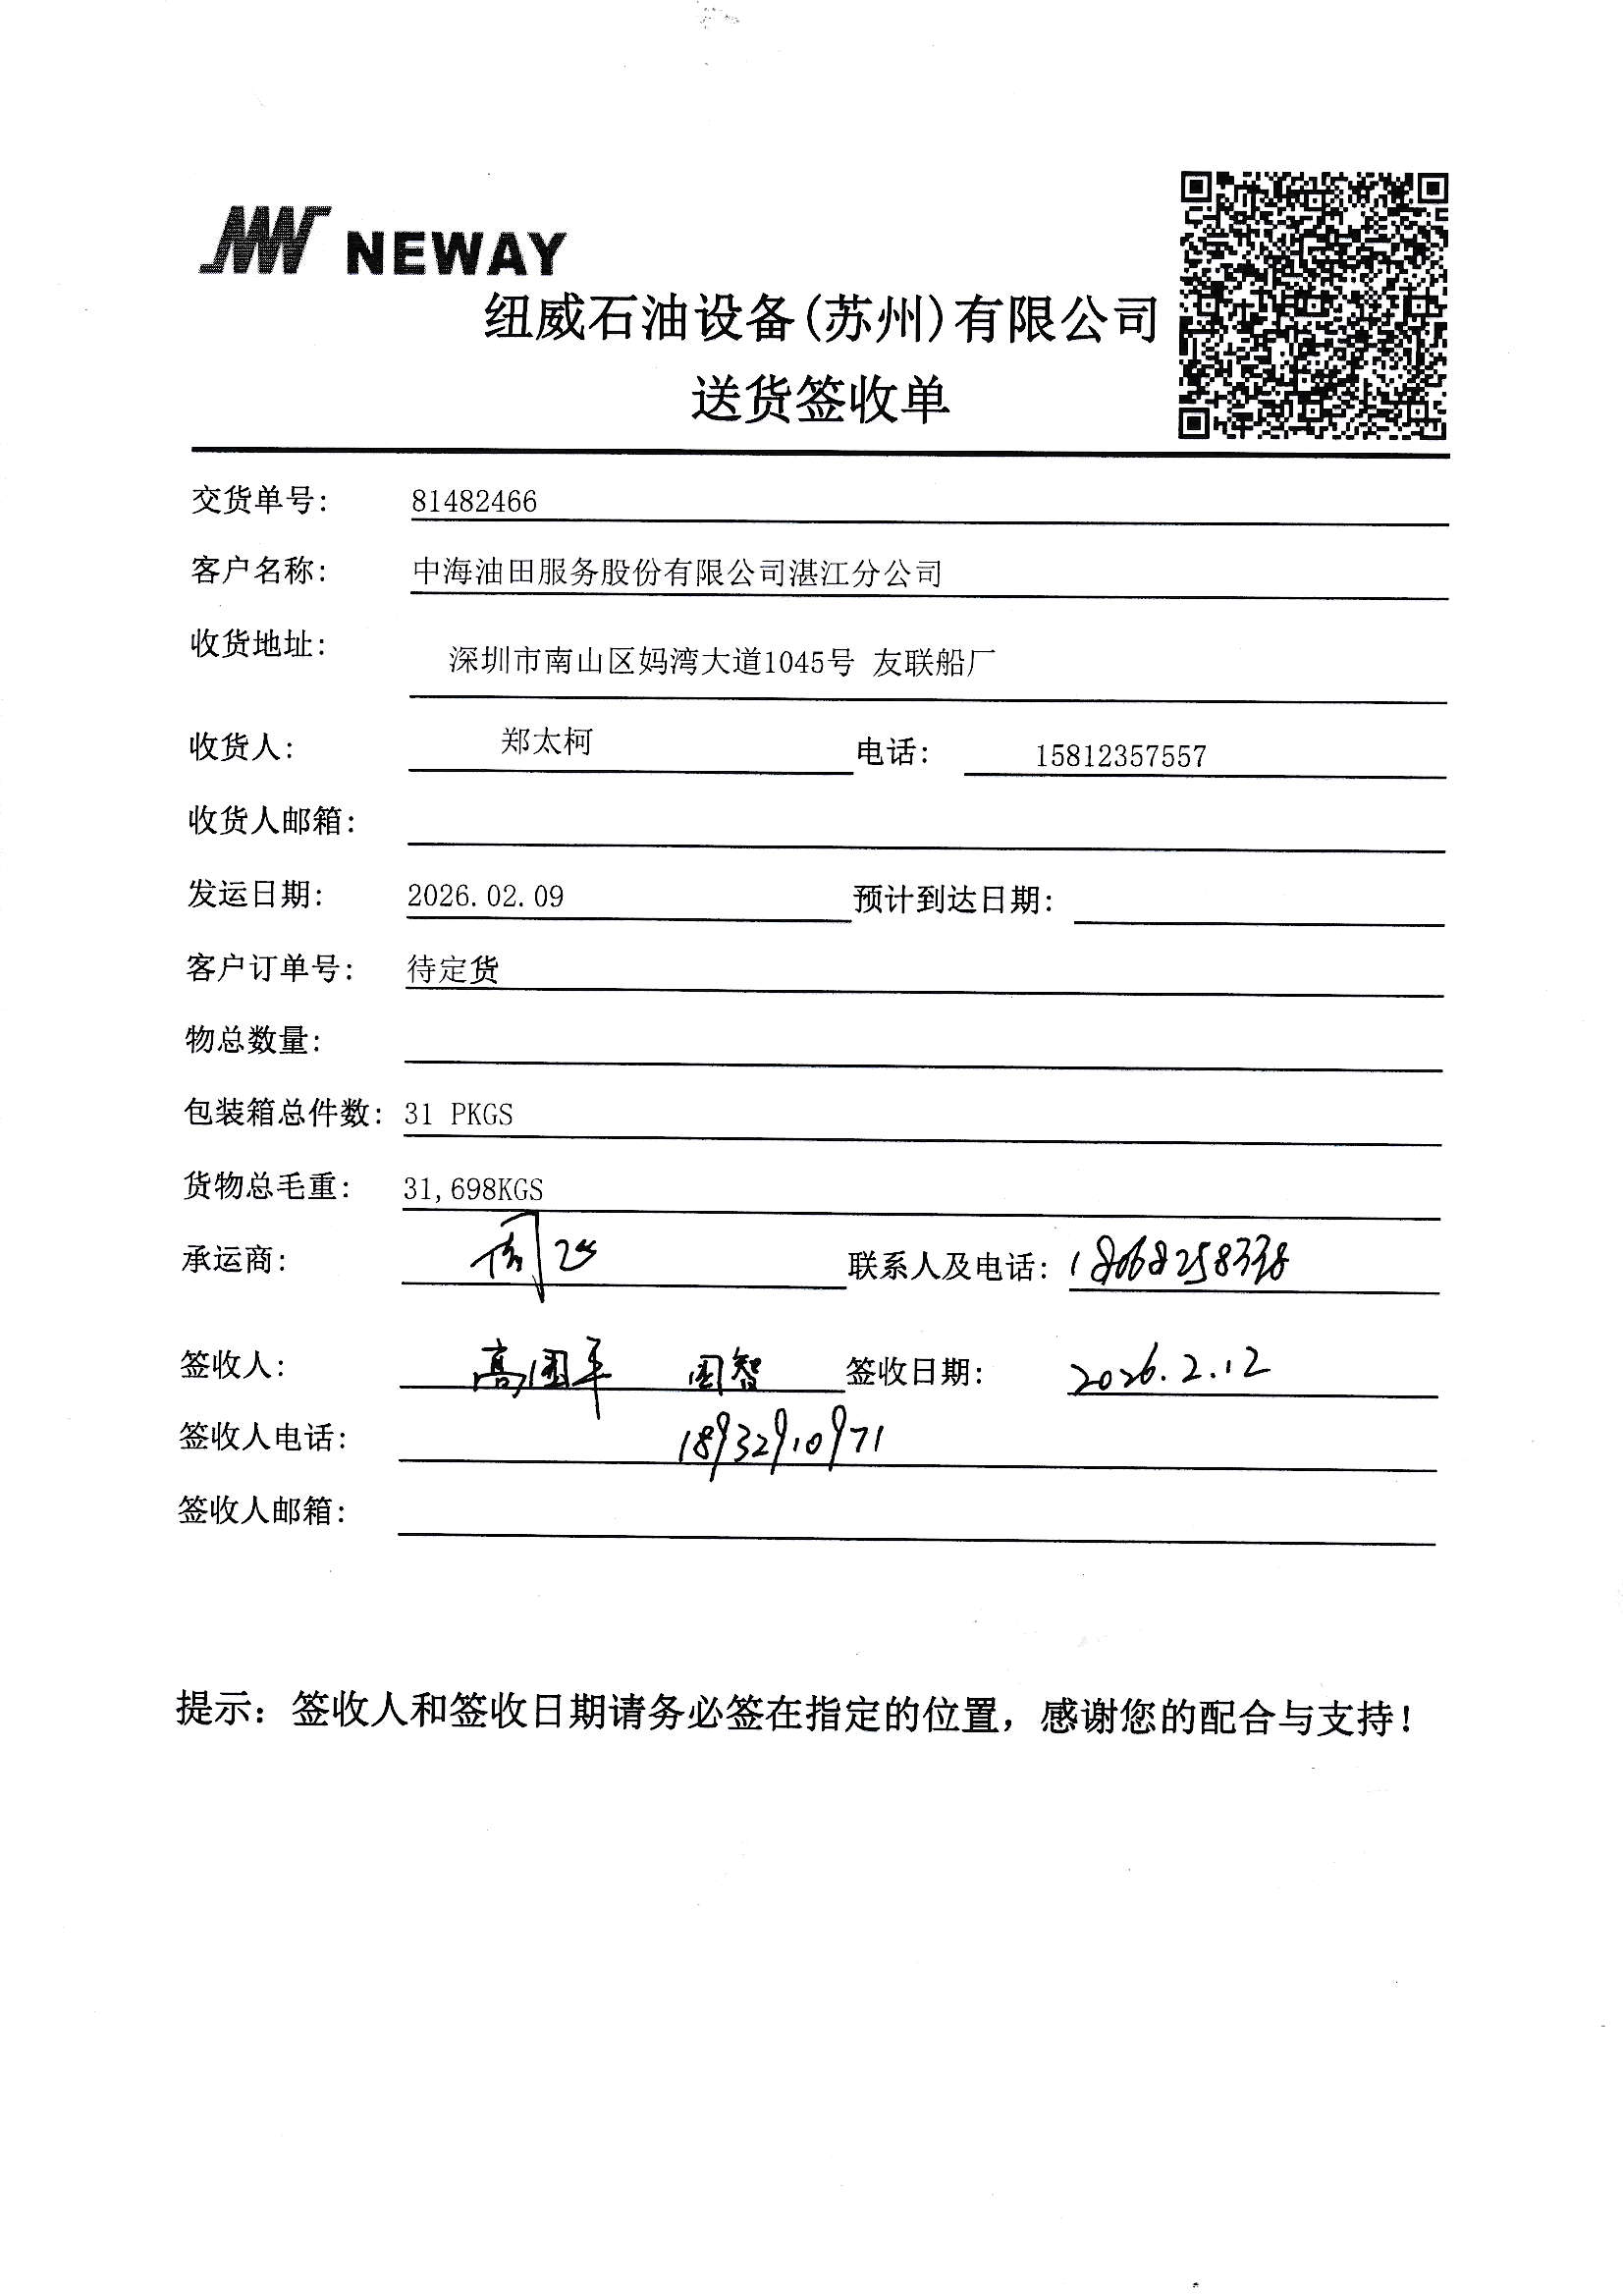 NEWAY
纽威石油设备(苏州)有限公司
送货签收单
交货单号: 81482466
客户名称: 中海油田服务股份有限公司湛江分公司
收货地址: 深圳市南山区妈湾大道1045号 友联船厂
收货人: 郑太柯 电话: 15812357557
收货人邮箱:
发运日期: 2026.02.09 预计到达日期:
客户订单号: 待定货
物总数量:
包装箱总件数: 31 PKGS
货物总毛重: 31,698KGS
承运商: 联系人及电话: 18068258338
签收人: 高国平 周智 签收日期: 2026.2.12
签收人电话: 18932910971
签收人邮箱:
提示: 签收人和签收日期请务必签在指定的位置，感谢您的配合与支持!